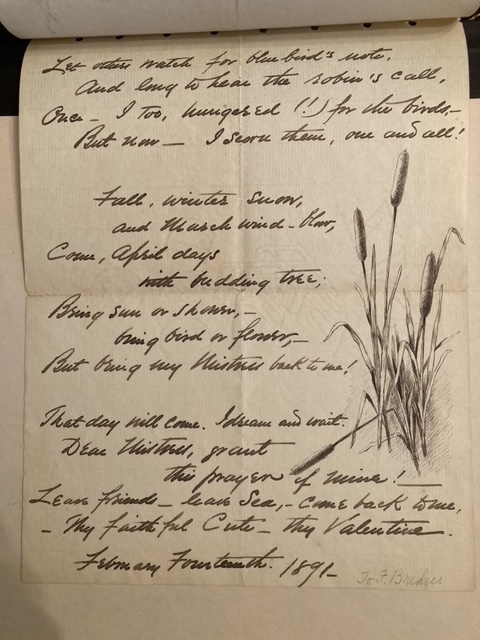 Let others watch for blue bird's note,
And long to hear the robin's call,
Once – I too, hungered (!) for the birds, –
But now – I scorn them, one and all!
Fall, winter snow,
and March wind – blow,
Come, April days
with budding tree;
Bring sun or shower, –
bring bird or flower, –
But bring my Mistress back to me!
That day will come. I dream and wait.
Dear Mistress, grant
this prayer of mine! –
Leave friends – leave Sea, – come back to me,
– Thy faithful Cute – thy Valentine.
February Fourteenth. 1891 –
To F. Bridges